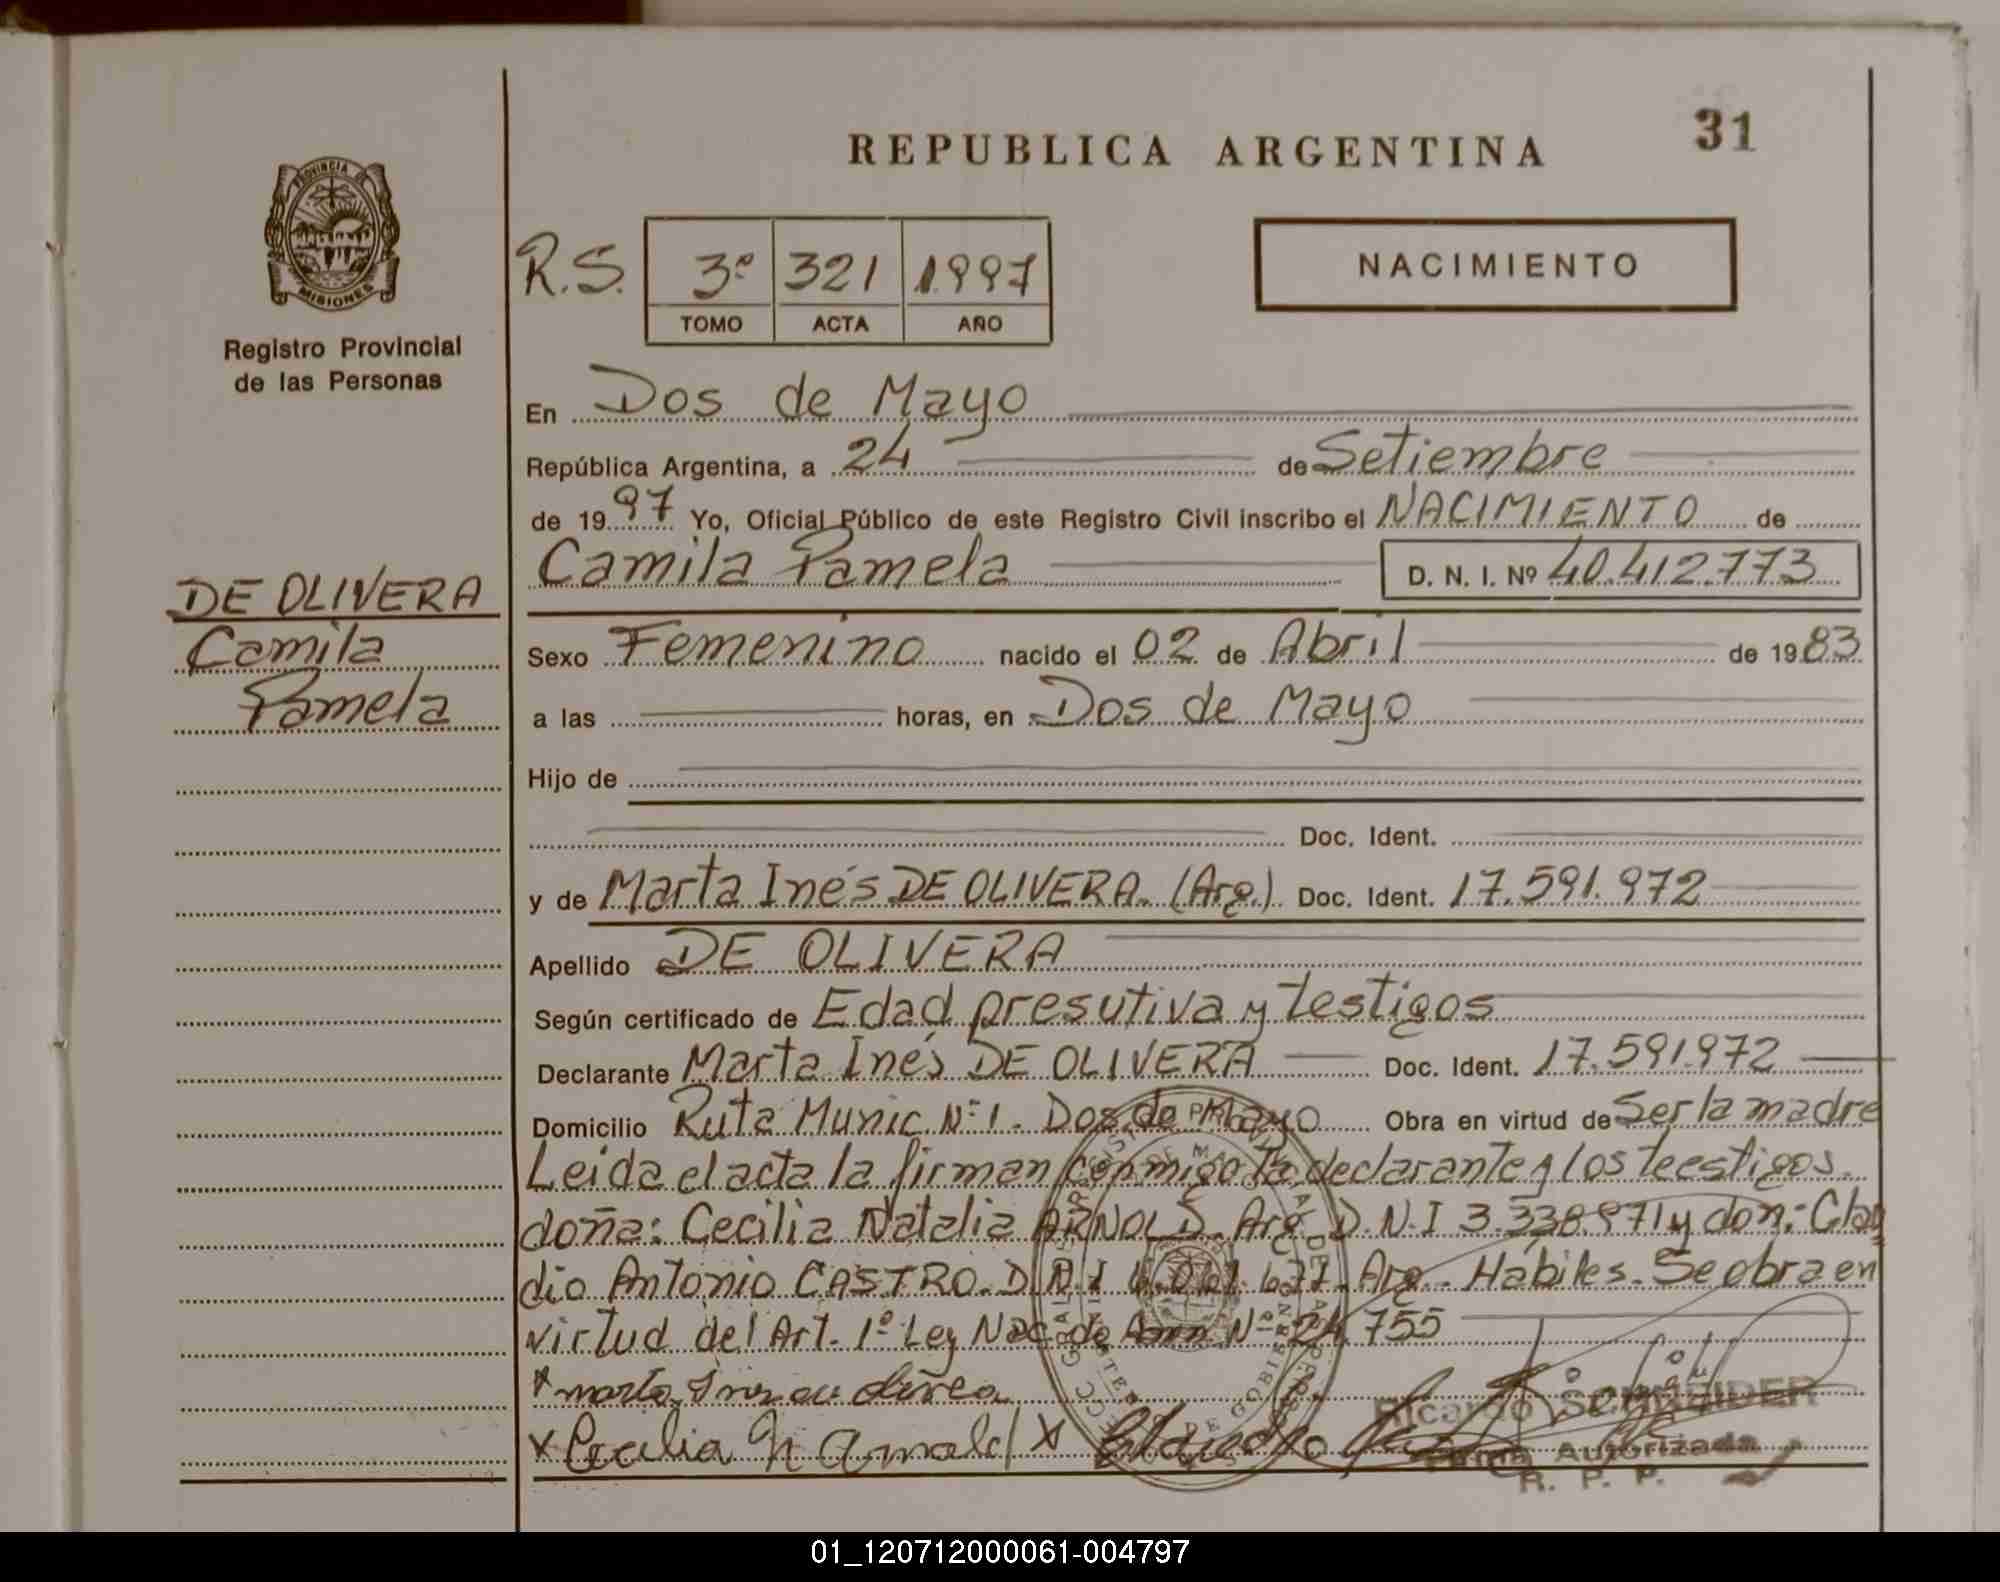 REPUBLICA ARGENTINA
31
PROVINCIA DE
MISIONES
Registro Provincial
de las Personas
R.S.
3º 321 1997
TOMO ACTA AÑO
NACIMIENTO
En Dos de Mayo
República Argentina, a 24 de Setiembre
de 1997 Yo, Oficial Público de este Registro Civil inscribo el NACIMIENTO de
Camila Pamela D. N. I. Nº 40.412.773
DE OLIVERA
Camila
Pamela
Sexo Femenino nacido el 02 de Abril de 1983
a las horas, en Dos de Mayo
Hijo de
Doc. Ident.
y de Marta Inés DE OLIVERA. (Arg.) Doc. Ident. 17.591.972
Apellido DE OLIVERA
Según certificado de Edad presutiva y testigos
Declarante Marta Inés DE OLIVERA Doc. Ident. 17.591.972
Domicilio Ruta Munic. Nº 1. Dos de Mayo Obra en virtud de Ser la madre
Leida el acta la firman conmigo la declarante y los teestigos.
doña: Cecilia Natalia ARNOLD. Arg. D.N.I 3.338.971 y don: Clau
dio Antonio CASTRO. D.N.I Arg. Habiles. Se obra en
virtud del Art. 1º Ley Nac. de Nº 24.755
x Cecilia N Arnold x Claudio
Ricardo SCHNEIDER
Firma Autorizada
R. P. P.
01_120712000061-004797